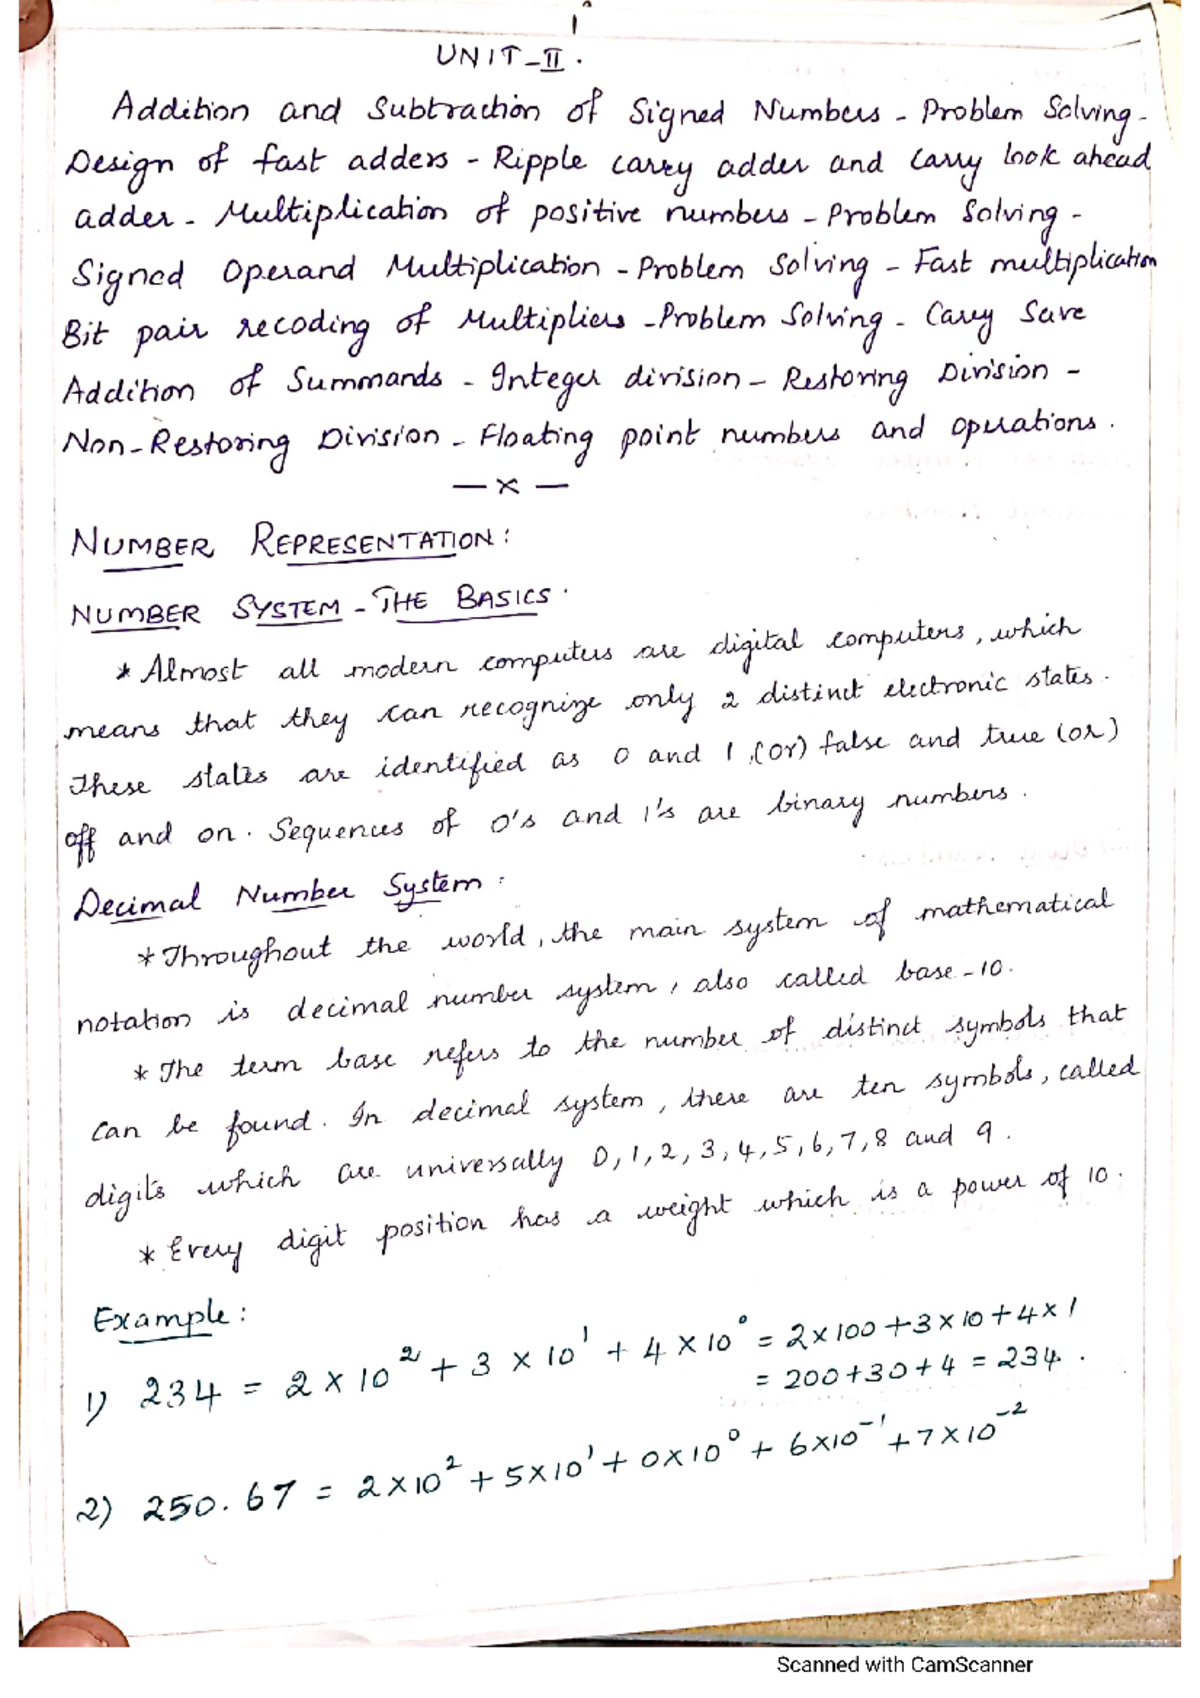 1
UNIT-II.
Addition and Subtraction of Signed Numbers - Problem Solving-
Design of fast adders - Ripple carry adder and Carry look ahead
adder - Multiplication of positive numbers - Problem Solving -
Signed Operand Multiplication - Problem Solving - Fast multiplication
Bit pair recoding of Multipliers - Problem Solving - Carry Save
Addition of Summands - Integer division - Restoring Division -
Non-Restoring Division - Floating point numbers and operations.
— x —
NUMBER REPRESENTATION:
NUMBER SYSTEM - THE BASICS.
* Almost all modern computers are digital computers, which
means that they can recognize only 2 distinct electronic states.
These states are identified as 0 and 1, (or) false and true (or)
off and on. Sequences of 0's and 1's are binary numbers.
Decimal Number System:
* Throughout the world, the main system of mathematical
notation is decimal number system, also called base-10.
* The term base refers to the number of distinct symbols that
can be found. In decimal system, there are ten symbols, called
digits which are universally 0,1,2,3,4,5,6,7,8 and 9.
* Every digit position has a weight which is a power of 10.
Example:
1) 234 = 2 x 10² + 3 x 10¹ + 4 x 10⁰ = 2x100+3x10+4x1
= 200+30+4 = 234.
2) 250.67 = 2x10² + 5x10¹ + 0x10⁰ + 6x10⁻¹ + 7x10⁻²
Scanned with CamScanner